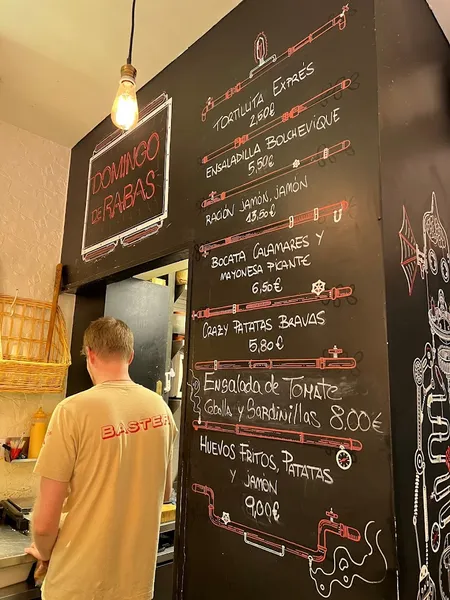 DOMINGO
DE RABAS
TORTILLITA EXPRÉS
2,50€
ENSALADILLA BOLCHEVIQUE
5,50€
RACIÓN JAMÓN, JAMÓN
13,50€
BOCATA CALAMARES Y
MAYONESA PICANTE
6,50€
CRAZY PATATAS BRAVAS
5,80€
ENSALADA DE TOMATE
Cebolla y SARDINILLAS 8,00€
HUEVOS FRITOS, PATATAS
Y JAMÓN
9,00€
BASTER